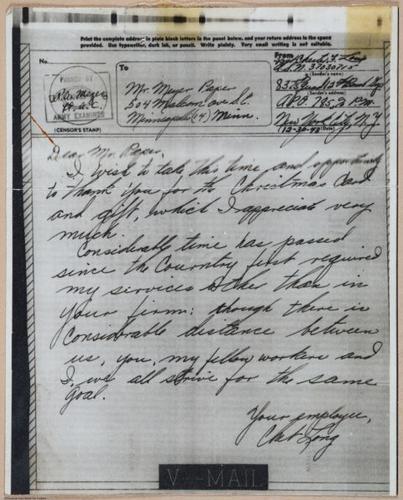 Print the complete address in plain block letters in the panel below, and your return address in the space
provided. Use typewriter, dark ink, or pencil. Write plainly. Very small writing is not suitable.
No.
To
From
PASSED BY
ARMY EXAMINER
(CENSOR'S STAMP)
Mr. Meyer Paper
Minneapolis (4) Minn.
(Sender's name)
(Sender's address)
A.P.O. 785, % P.M.
New York City, N.Y.
Dear Mr. Paper.
I wish to take this time and opportunity
to thank you for the Christmas Card
and gift, which I appreciate very
much.
Considerably time has passed
since the Country first required
my services other than in
your firm: though there is
Considerable distance between
us, you, my fellow workers and
I, we all strive for the same
goal.
Your employee,
Chet Long
V-MAIL